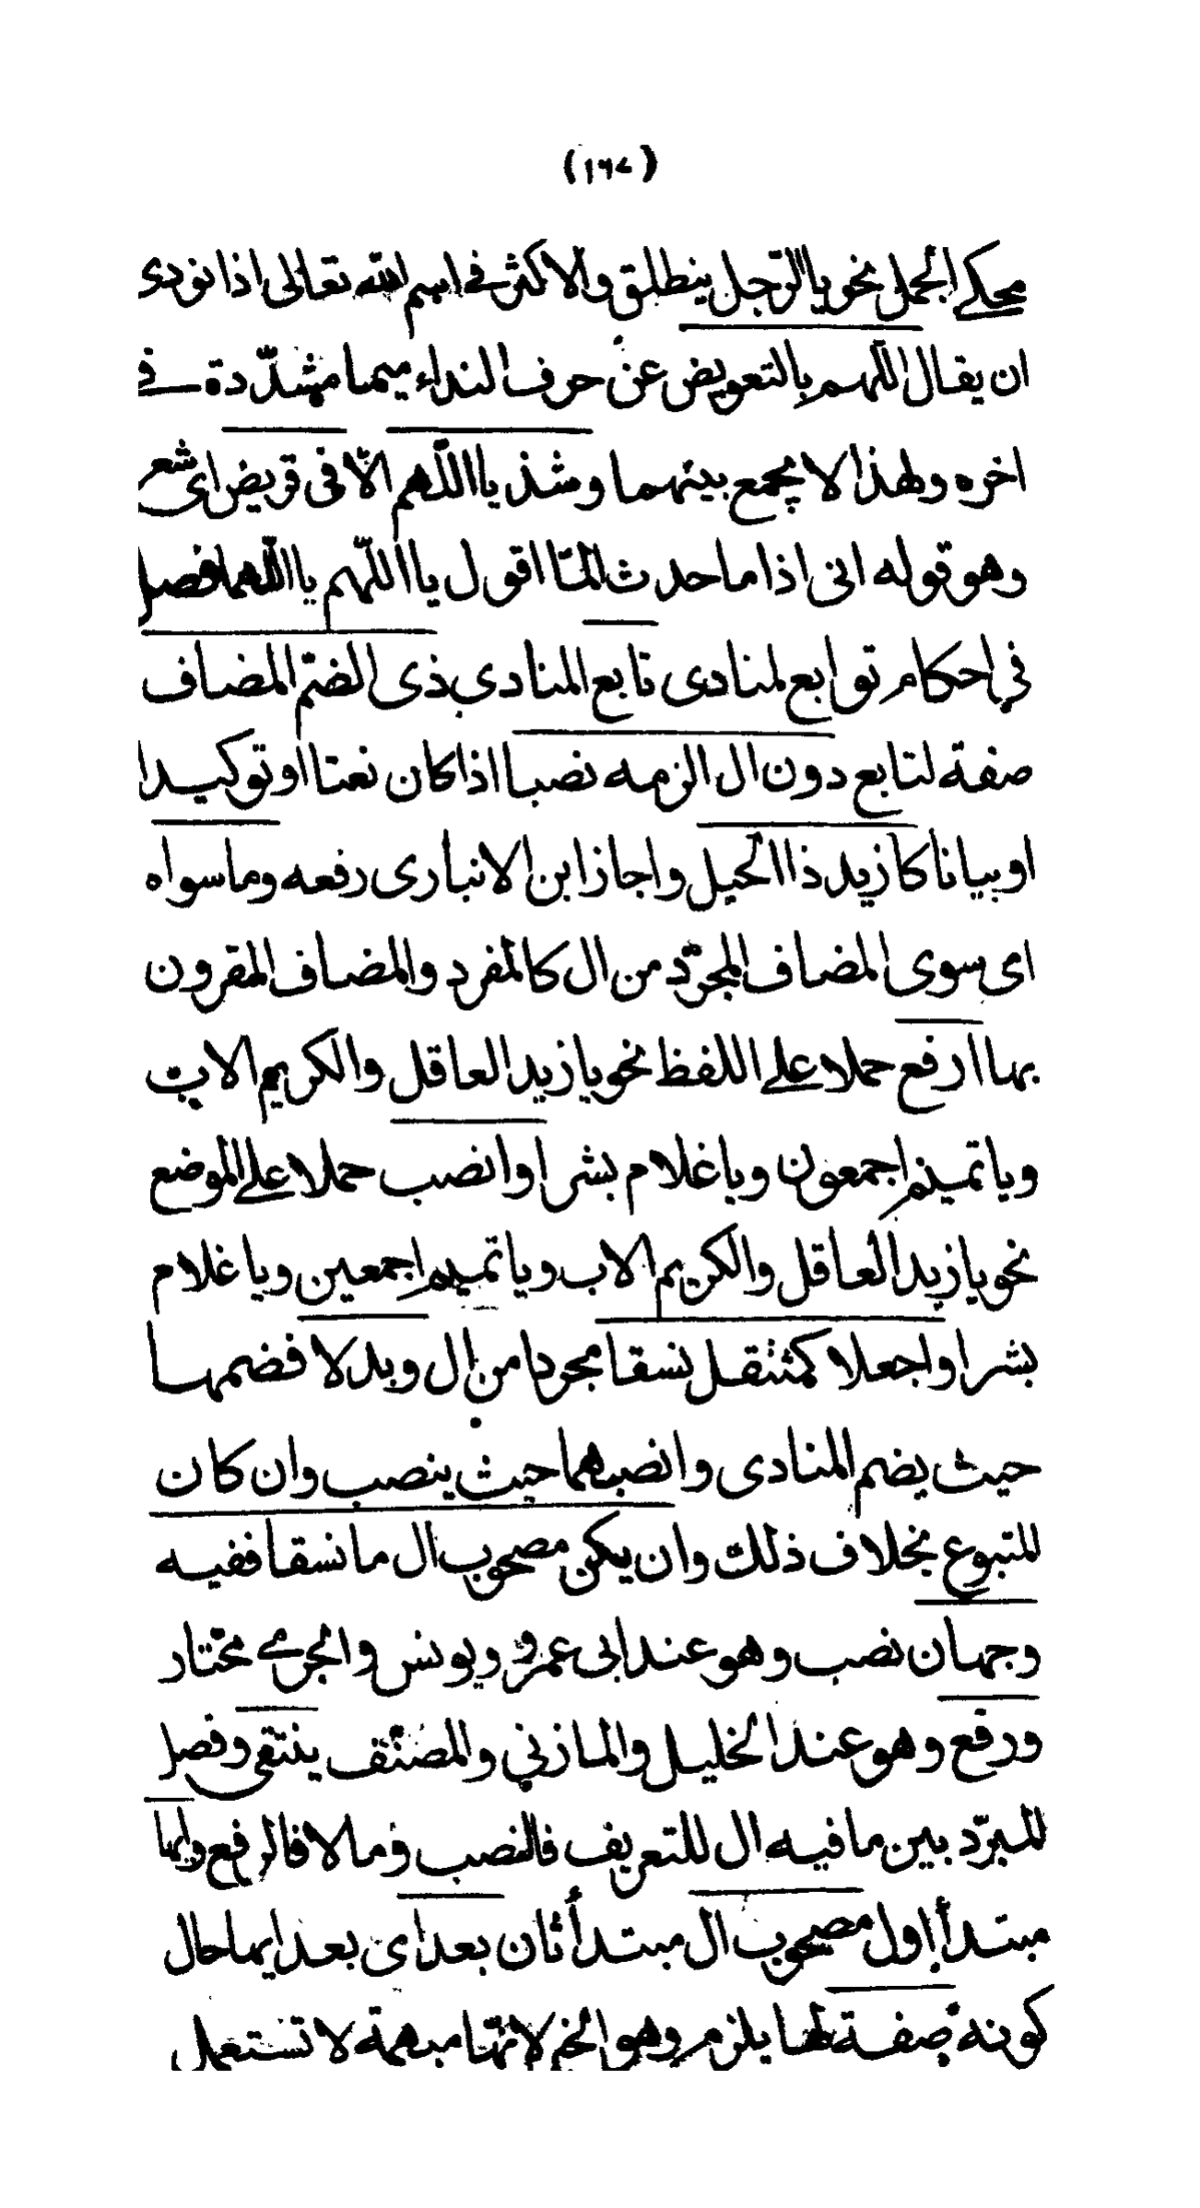 (١٦٧)
محكى الجمل نحو يا الرّجل ينطلق والاكثر فى اسم الله تعالى اذا نودى
ان يقال اللّهم بالتعويض عن حرف النداء ميما مشدّدة فى
اخره ولهذا لا يجمع بينهما وشذ يا اللّهم الّا فى قريض اى شعر
وهو قوله انى اذا ما حدث المّا اقول يا اللّهم يا اللّهما فصل
فى احكام توابع لمنادى تابع المنادى ذى الضّم المضاف
صفة لتابع دون ال الزمه نصبا اذا كان نعتا او توكيدا
او بيانا كازيد ذا الحيل واجاز ابن الانبارى رفعه وما سواه
اى سوى المضاف المجرّد من ال كالمفرد والمضاف المقرون
بها ارفع حملا على اللفظ نحو يا زيد العاقل والكريم الاب
ويا تميم اجمعون ويا غلام بشر او انصب حملا على الموضع
نحو يا زيد العاقل والكريم الاب ويا تميم اجمعين ويا غلام
بشرا واجعلا كمستقل نسقا مجردا من ال وبدلا فضمهما
حيث يضم المنادى وانصبهما حيث ينصب وان كان
للتبوع بخلاف ذلك وان يكن مصحوب ال ما نسقا ففيه
وجهان نصب وهو عند ابى عمرو ويونس والجرمى مختار
ورفع وهو عند الخليل والمازني والمصنّف ينتقى وفصل
المبرّد بين ما فيه ال للتعريف فالنصب وما لا فالرفع وايها
مبتدأ اول مصحوب ال مبتدأ ثان بعد اى بعد ايها حال
كونه صفة لها يلزم وهو الخبر لانّها مبهمة لا تستعمل